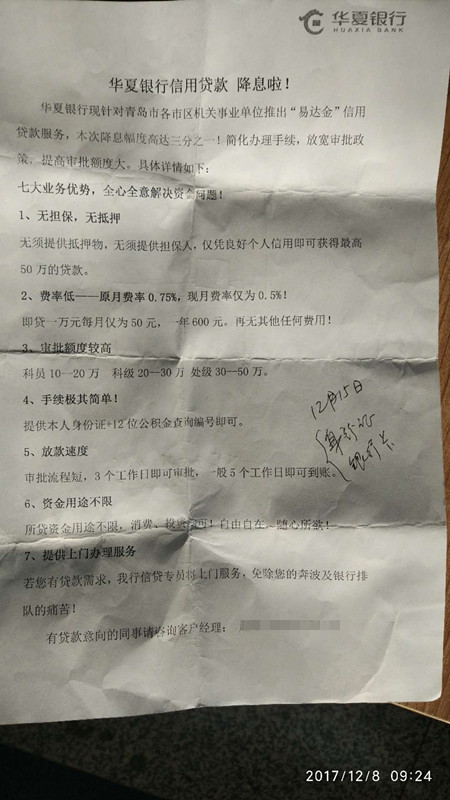 华夏银行
HUAXIA BANK
华夏银行信用贷款 降息啦！
华夏银行现针对青岛市各市区机关事业单位推出“易达金”信用
贷款服务，本次降息幅度高达三分之一！简化办理手续，放宽审批政
策，提高审批额度大。具体详情如下：
七大业务优势，全心全意解决资金问题！
1、无担保，无抵押
无须提供抵押物，无须提供担保人，仅凭良好个人信用即可获得最高
50 万的贷款。
2、费率低——原月费率 0.75%，现月费率仅为 0.5%！
即贷一万元每月仅为 50 元，一年 600 元。再无其他任何费用！
3、审批额度较高
科员 10—20 万 科级 20—30 万 处级 30—50 万。
4、手续极其简单！
提供本人身份证+12 位公积金查询编号即可。
12月15日
身份证
银行卡
5、放款速度
审批流程短，3 个工作日即可审批，一般 5 个工作日即可到账。
6、资金用途不限
所贷资金用途不限，消费、投资均可！自由自在、随心所欲！
7、提供上门办理服务
若您有贷款需求，我行信贷专员将上门服务，免除您的奔波及银行排
队的痛苦！
有贷款意向的同事请咨询客户经理：
2017/12/8 09:24